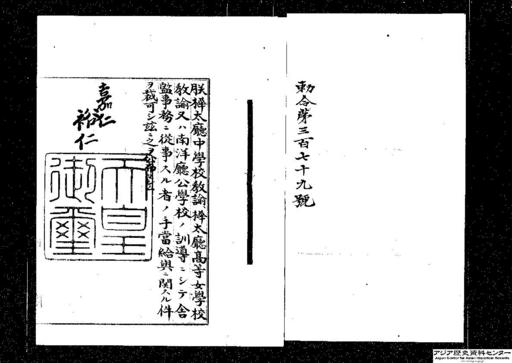 勅令第三百七十九號
朕樺太廳中學校教諭樺太廳高等女學校
教諭又ハ南洋廳公學校ノ訓導ニシテ舍
監事務ニ從事スル者ノ手當給與ニ關スル件
ヲ裁可シ茲ニ之ヲ公布セシム
嘉仁
裕仁
天皇
御璽
アジア歴史資料センター
Japan Center for Asian Historical Records